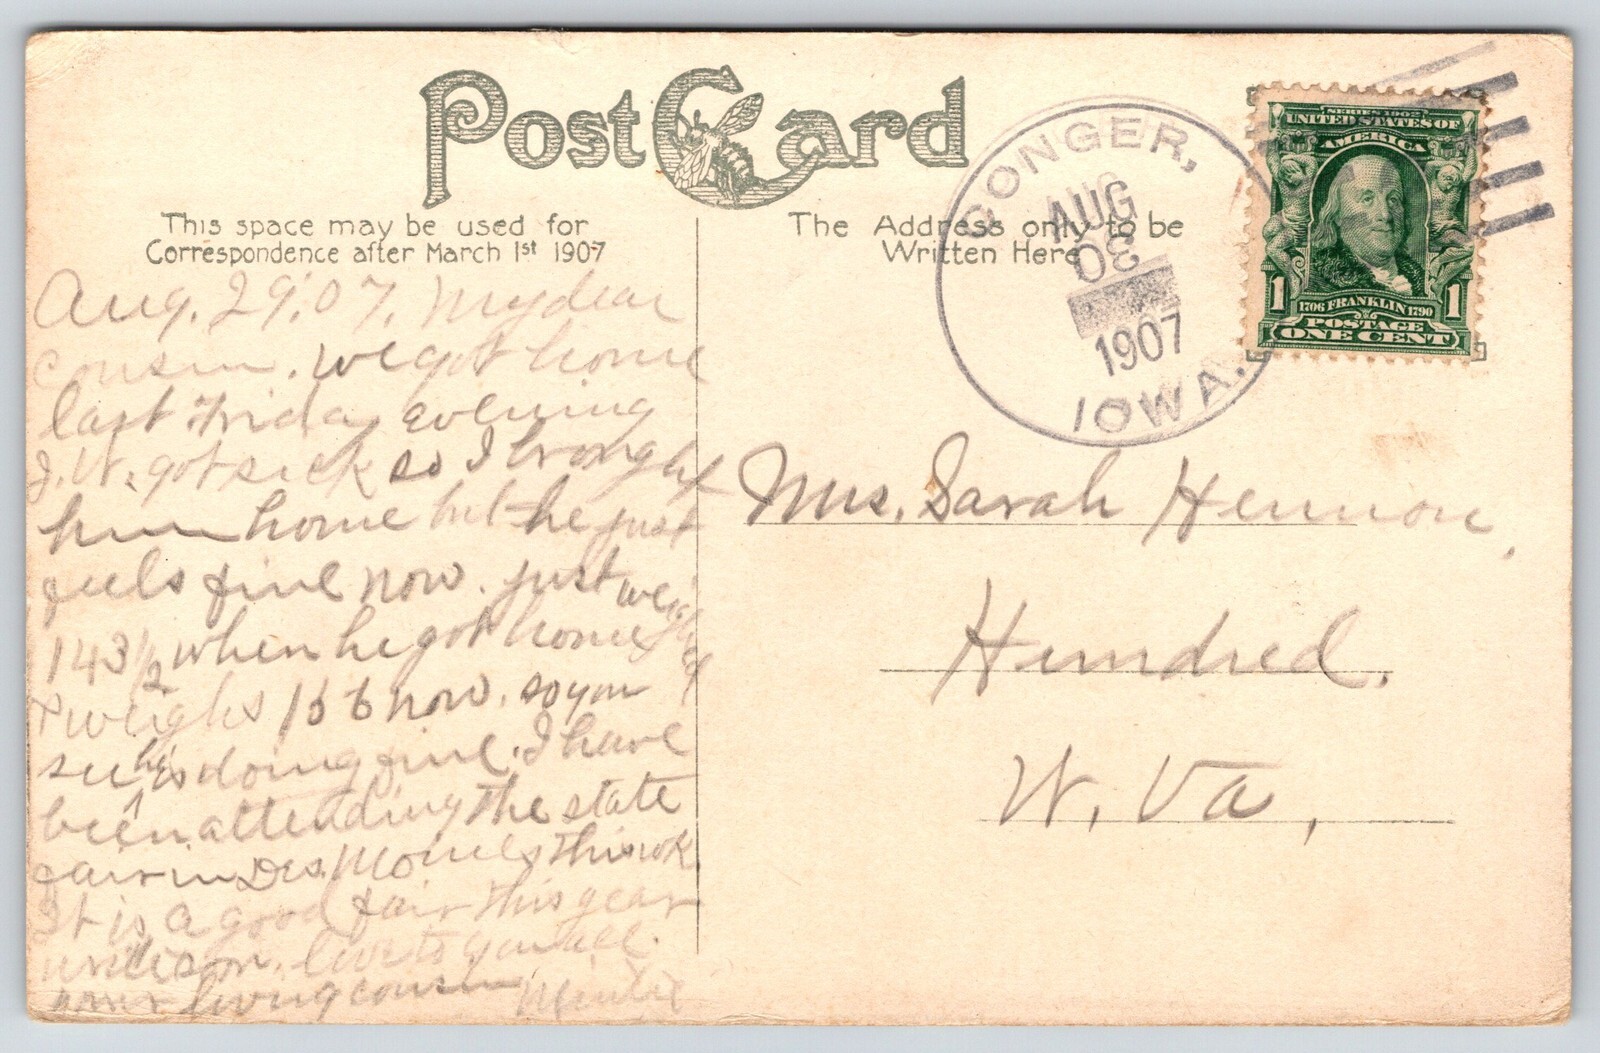 Post Card
This space may be used for
Correspondence after March 1st 1907
The Address only to be
Written Here
CONGER,
AUG
30
1907
IOWA.
SERIES 1902
UNITED STATES OF
AMERICA
1 1706 FRANKLIN 1790 1
POSTAGE
ONE CENT
Aug. 29, '07. My dear
cousin. We got home
last Friday evening
J. W. got sick so I brought
him home but he just
feels fine now. just weighed
143 1/2 when he got home
& weighs 156 now. so you
see he is doing fine. I have
been attending the state
fair in Des. Moines this wk
It is a good fair this year
write soon. love to you all.
your loving cousin
Mrs. Sarah Hennon,
Hundred.
W. Va,